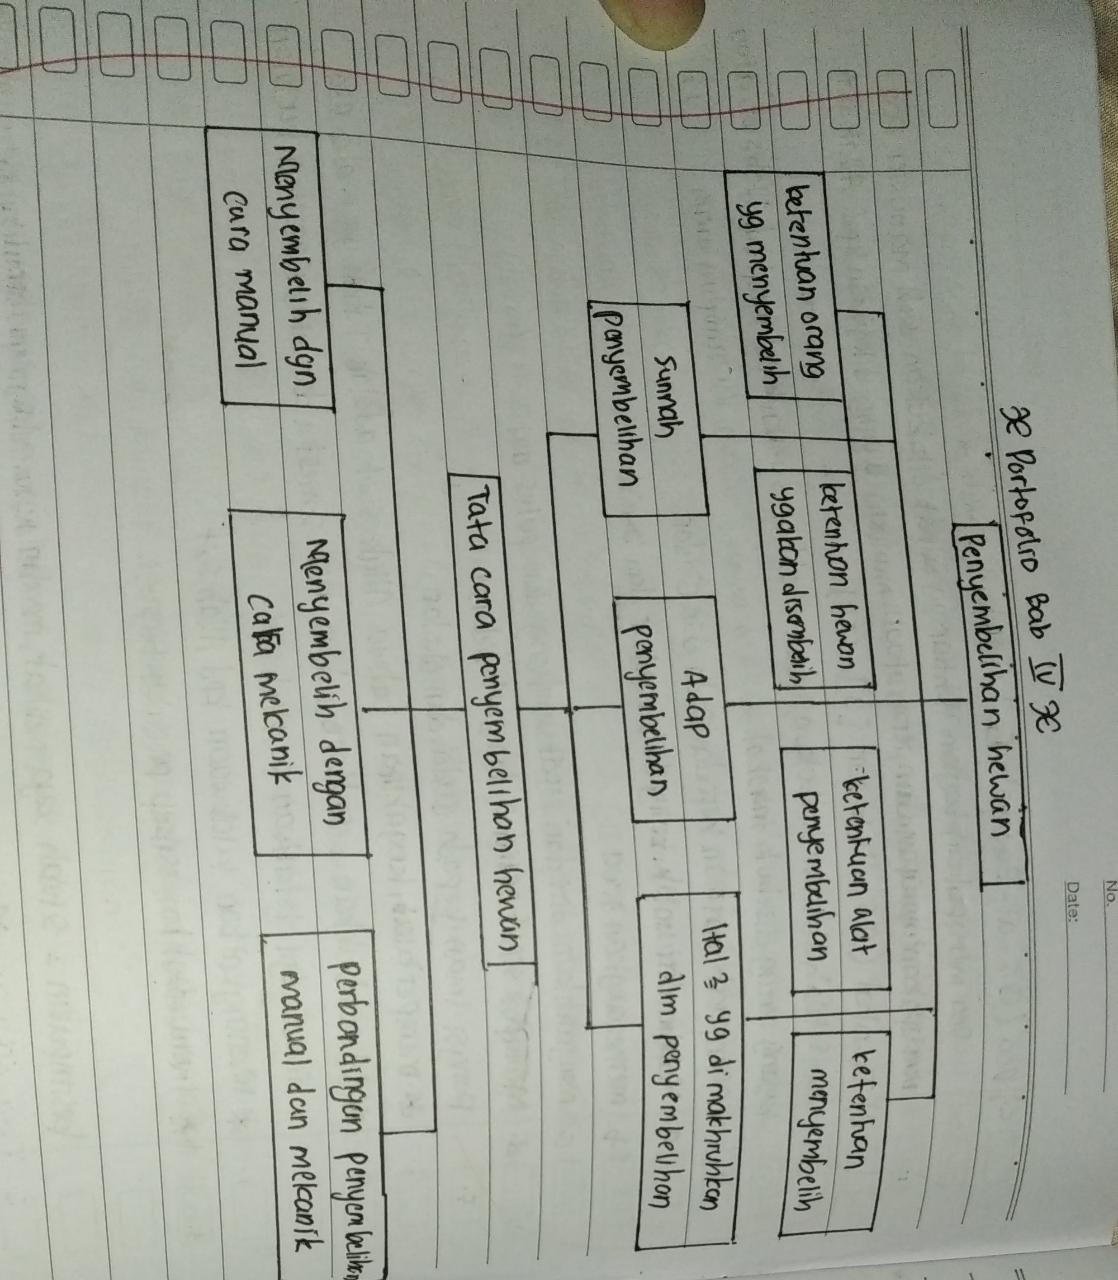 No.
Date:
Portofolio Bab IV
Penyembelihan hewan
ketentuan orang
yg menyembelih
ketentuan hewan
yg akan disembelih
ketentuan alat
penyembelihan
ketentuan
menyembelih
Sunnah
penyembelihan
Adap
penyembelihan
Hal 2 yg di makhruhkan
dlm penyembelihan
Tata cara penyembelihan hewan
Menyembelih dgn
cara manual
Menyembelih dengan
cara mekanik
perbandingan penyembelihan
manual dan mekanik